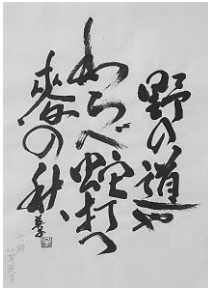 野の道や
わらべ蛇打つ
麥の秋